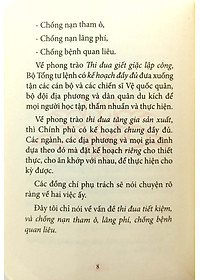 - Chống nạn tham ô,
- Chống nạn lãng phí,
- Chống bệnh quan liêu.
Về phong trào Thi đua giết giặc lập công,
Bộ Tổng tư lệnh có kế hoạch đầy đủ đưa xuống
tận các cán bộ và các chiến sĩ Vệ quốc quân,
bộ đội địa phương và dân quân du kích để
mọi người học tập, thấm nhuần và thực hiện.
Về phong trào thi đua tăng gia sản xuất,
thì Chính phủ có kế hoạch chung đầy đủ.
Các ngành, các địa phương và mọi gia đình
dựa theo đó mà đặt kế hoạch riêng cho thiết
thực, cho ăn khớp với nhau, để thực hiện cho
kỳ được.
Các đồng chí phụ trách sẽ nói chuyện rõ
ràng về hai việc ấy.
Đây tôi chỉ nói về vấn đề thi đua tiết kiệm,
và chống nạn tham ô, lãng phí, chống bệnh
quan liêu.
8